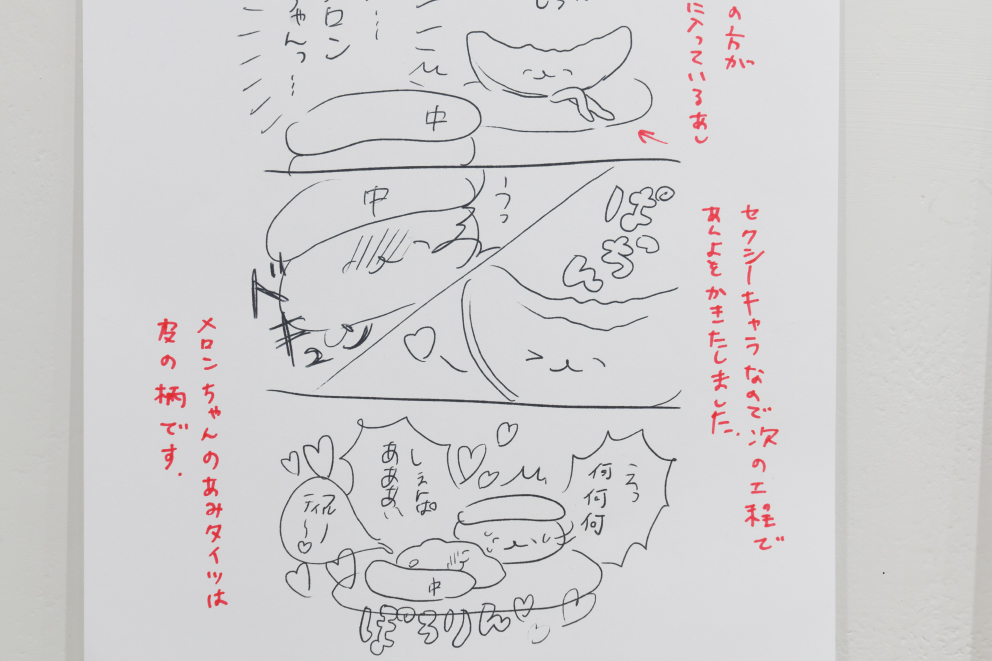 の方が
に入っているあし
メロン
ちゃんっ…
中
セクシーキャラなので次の工程で
あんよをかきたしました。
ぱ
ん
中
ドキュン
メロンちゃんのあみタイツは
皮の柄です.
えっ
何何何
しぇぱ
あああい
中
ぽろりん